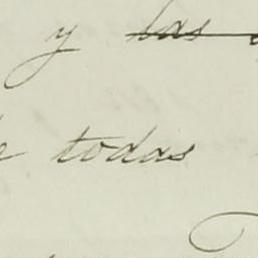 y las
todas